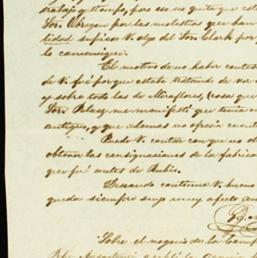 trabajo y tiempo, pero eso no quita que este
Sor Obregon por las molestias que han
lidad suplico V. diga del Sor Clark por
la comunique.
El motivo de no haber contes
de V. fué por que estaba tratando de ver
y sobre todo las de Miraflores, cosa que
Sor Pelaez me manifestó que tenia
antiguo, y que ademas no ofrecia cuenta
Puede V. contar con que no
obtener las consignaciones de la fabrica
que fué antes de Rubio.
Deseando continue V. bueno
queda siempre suyo muy afecto
Sobre el negocio de la Comp